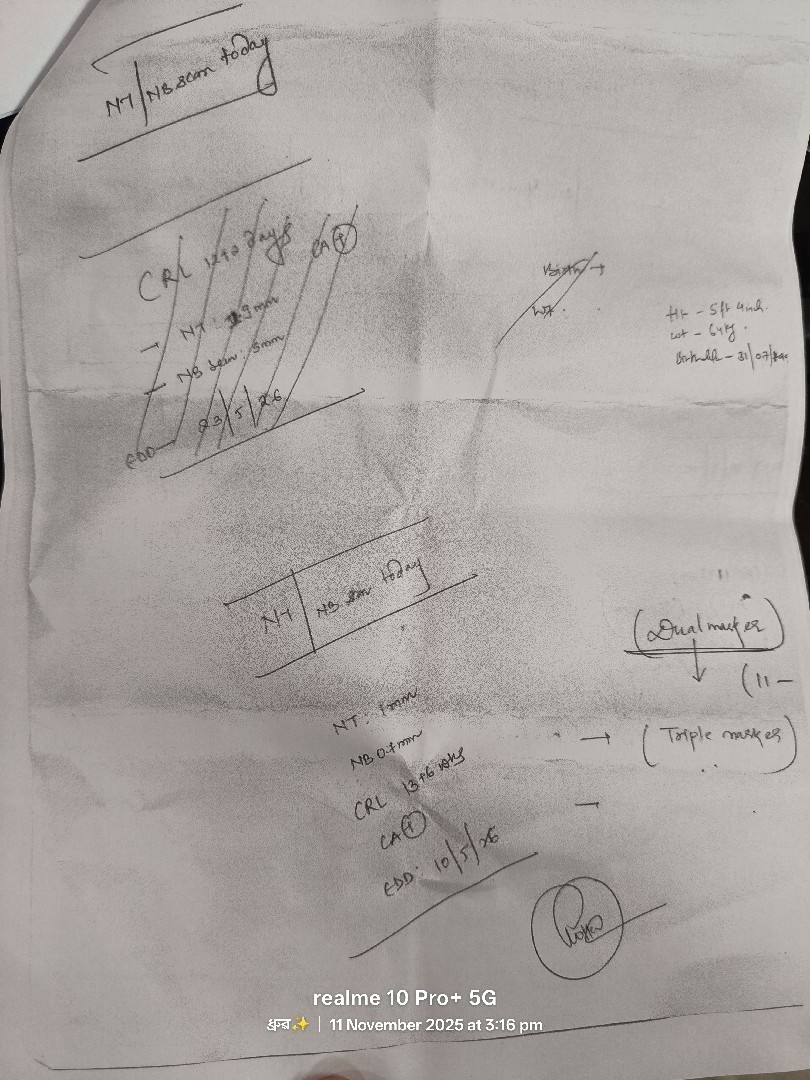 NT/NB scan today
CRL 12+2 days CA +
→ NT: 1.9mm
NB scan: 5mm
EDD 23/5/26
Birth →
Wt.
Ht - 5ft 4inch.
wt - 64kg.
31/07/
NT/NB scan today
NT: 1mm
NB 0.7mm
CRL 13+6 wks
CA +
EDD: 10/5/26
(Dual marker)
↓
(11 -
→ (Triple marker)
→
realme 10 Pro+ 5G
ধ্রুব✨ | 11 November 2025 at 3:16 pm